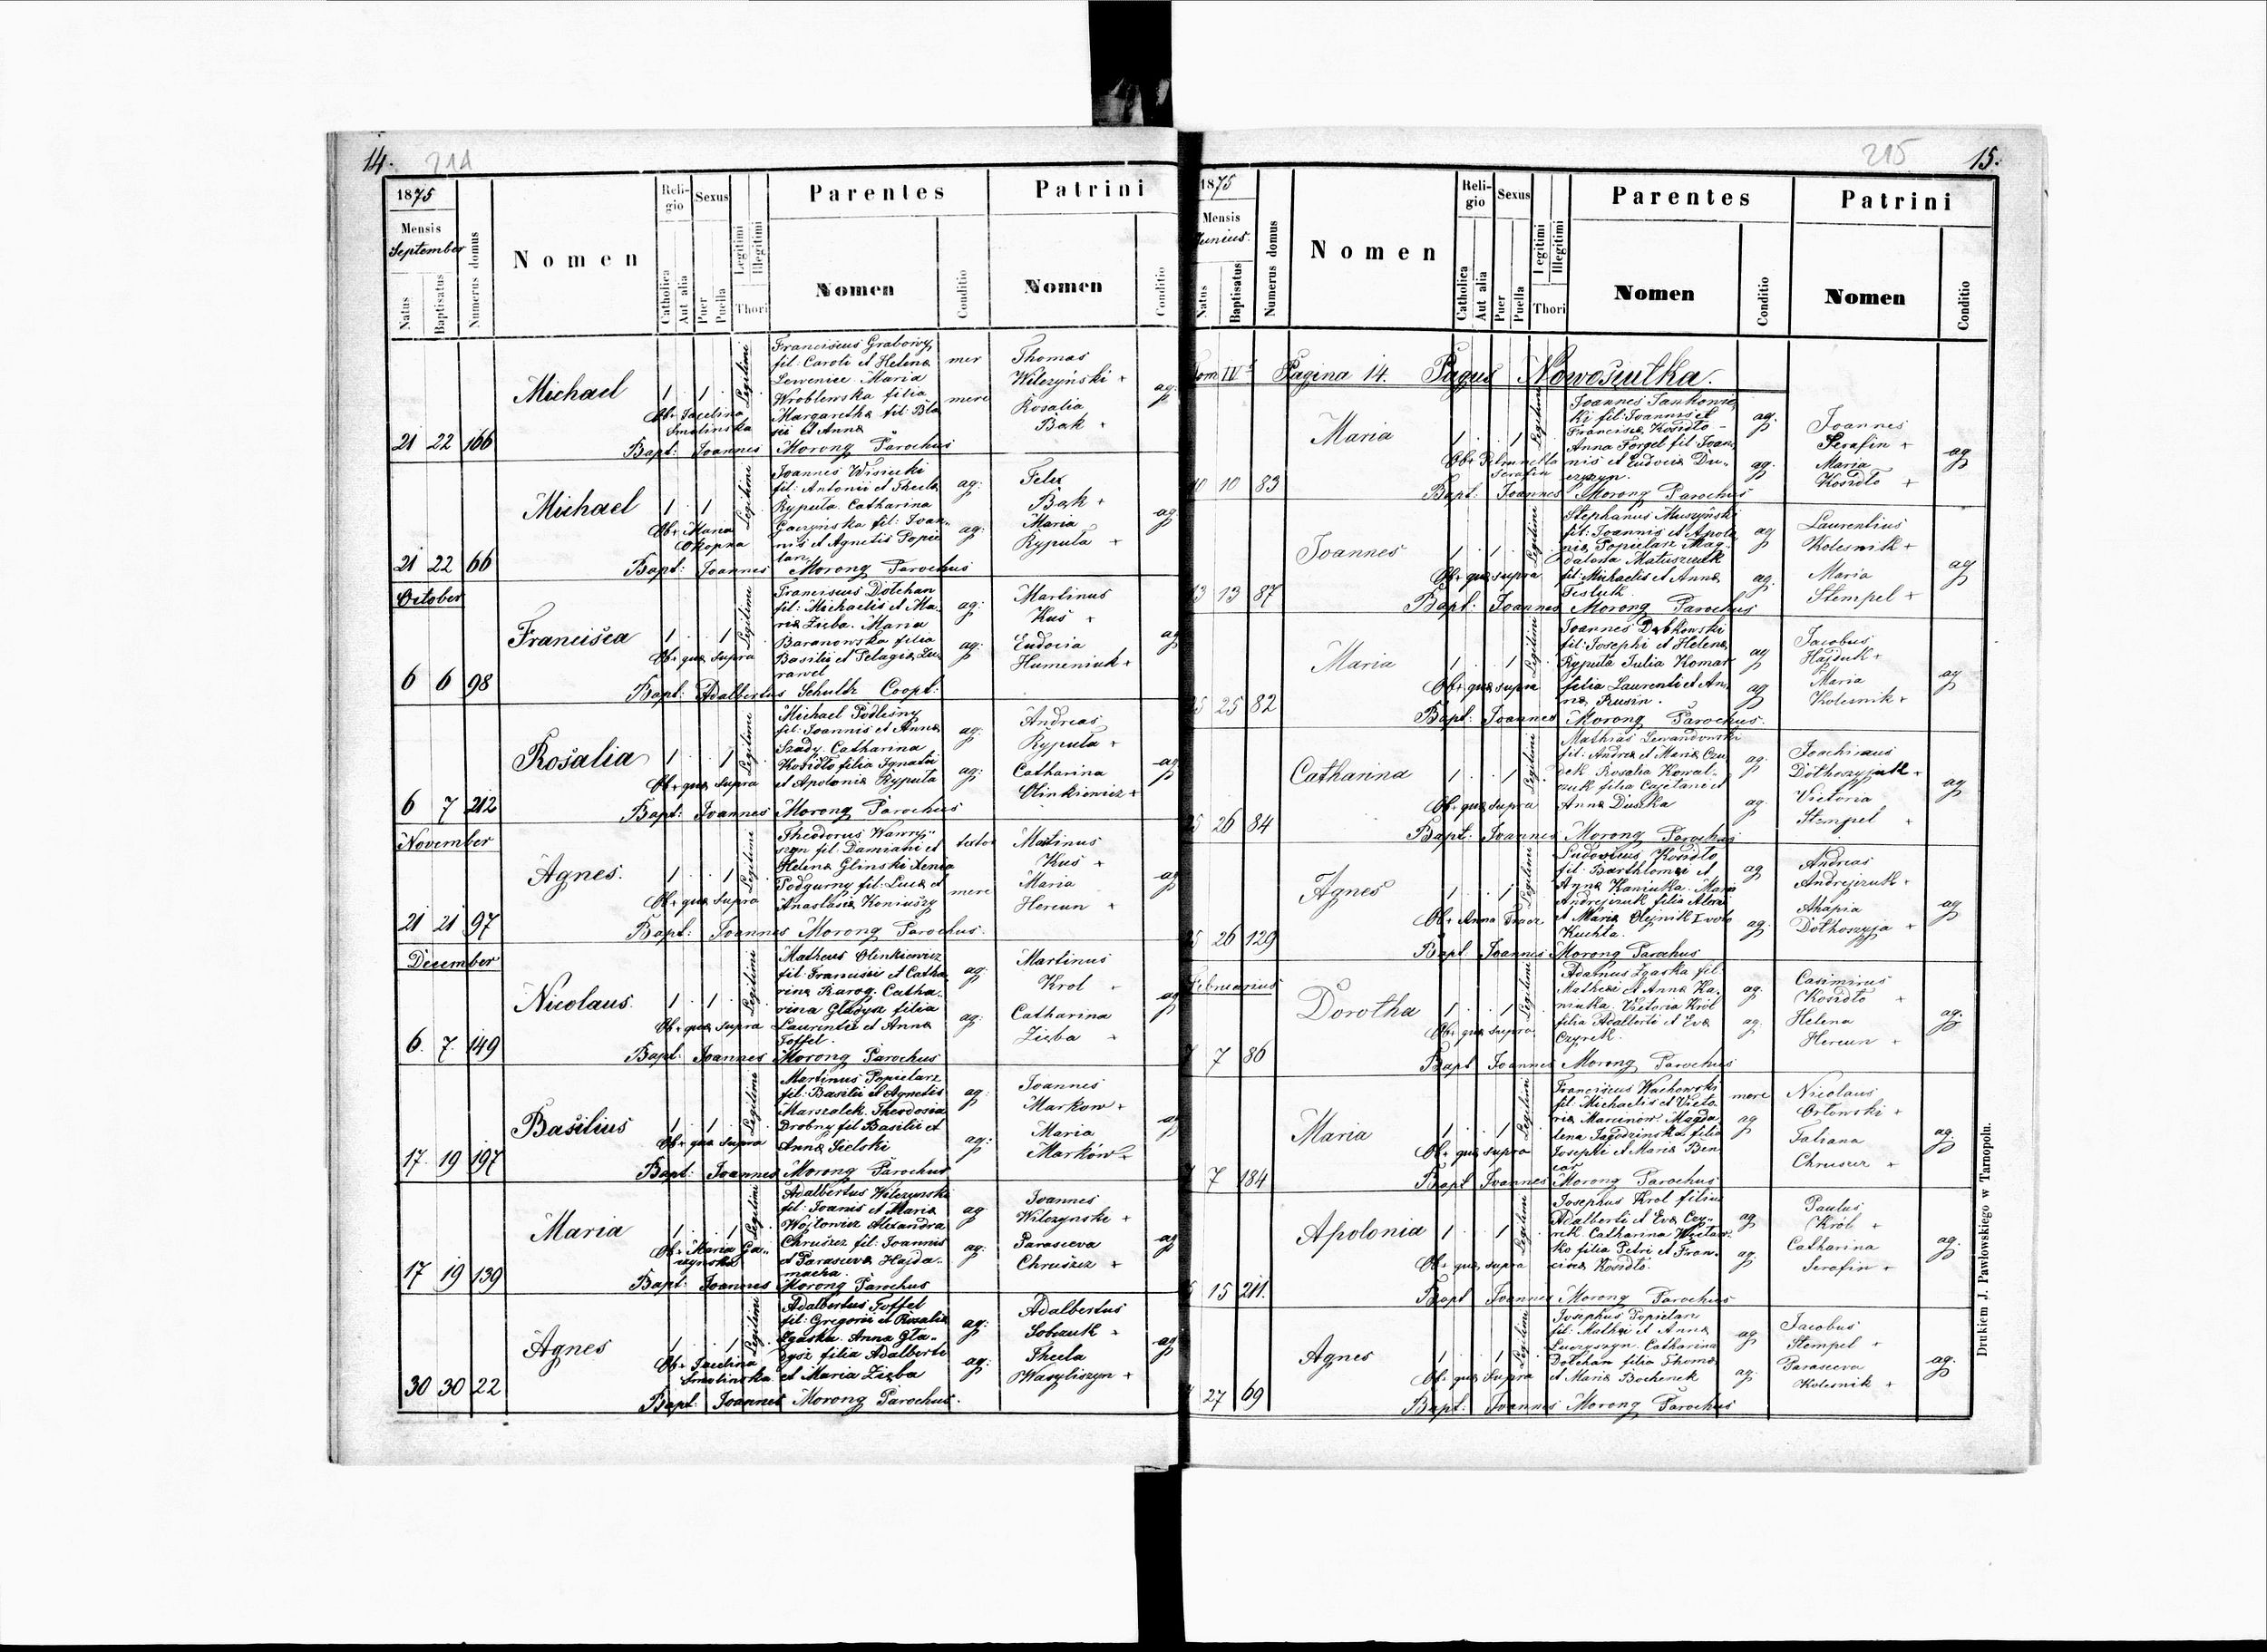 14. 214
1875
Mensis
September
Natus
Baptisatus
Numerus domus
Nomen
Religio
Catholica
Aut alia
Sexus
Puer
Puella
Legitimi
Illegitimi
Thori
Parentes
Nomen
Conditio
Patrini
Nomen
Conditio
21 22 166
Michael
1 1
Legitimi
Obs. Tacelina
Smolinska
Franciscus Grabowy
fil: Caroli et Helenæ
Lewenice. Maria
Wroblewska filia
Margarethæ fil: Bla
sii et Annæ
mer
mere
Thomas
Wilczyński +
Rosalia
Bak +
ag:
Bapt: Joannes Morong Parochus
21 22 66
Michael
1 1
Legitimi
Obs. Maria
Okopna
Joannes Wisnicki
fil: Antonii et Theclæ
Ryputa. Catharina
Gaczyńska fil: Joan-
nis et Agnetis Popie
larz
ag:
ag:
Felix
Bąk +
Maria
Ryputa +
ag:
Bapt: Joannes Morong Parochus
October
6 6 98
Francisca
1 1
Legitimi
Obs. quæ supra
Franciscus Dolchan
fil: Michaelis et Ma-
riæ Zięba. Maria
Baranowska filia
Basilii et Pelagiæ Żu-
rawel
ag:
ag:
Martinus
Kuś +
Eudocia
Humeniuk +
ag
Bapt: Adalbertus Schultz Coopt:
6 7 212
Rosalia
1 1
Legitimi
Obs. quæ supra
Michael Podleśny
fil: Joannis et Annæ
Szady. Catharina
Kosidło filia Ignatii
et Apoloniæ Ryputa
ag:
ag:
Andreas
Ryputa +
Catharina
Olinkiewicz +
ag
Bapt: Joannes Morong Parochus
November
21 21 97
Agnes.
1 1
Legitimi
Obs. quæ supra
Theodorus Wawry-
szyn fil: Damiani et
Helenæ Glinski Xenia
Podgurny fil: Lucæ et
Anastasiæ Koniuszy
textor
mere
Martinus
Kuś +
Maria
Hercun +
ag
Bapt: Joannes Morong Parochus.
December
6. 7. 149
Nicolaus.
1 1
Legitimi
Obs. quæ supra
Matheus Olinkiewicz
fil: Francisci et Catha
rinæ Rarog. Catha-
rina Gladysz filia
Laurentii et Annæ
Toffel.
ag:
ag:
Martinus
Krol +
Catharina
Zięba +
ag
Bapt: Joannes Morong Parochus
17. 19 197
Basilius
1 1
Legitimi
Obs. quæ supra
Martinus Popielarz
fil: Basilii et Agnetis
Marszalek. Theodosia
Drobny fil Basilii et
Annæ Sielski
ag:
ag:
Joannes
Markow +
Maria
Marków +
ag
Bapt: Joannes Morong Parochus
17 19 139
Maria
1 1
Legitimi
Obs. Maria Ga-
czyńska
Adalbertus Wilczynski
fil: Joanis et Mariæ
Wojtowicz Alexandra
Chruszcz fil: Joannis
et Parascevæ Hajda-
macha.
ag
ag:
Joannes
Wilczynski +
Parasceva
Chruszcz +
ag
Bapt: Joannes Morong Parochus
30 30 22
Agnes
1 1
Legitimi
Obs. Tacelina
Smolinska
Adalbertus Toffel
fil: Gregorii et Rosaliæ
Zgaska. Anna Gla-
dysz filia Adalberti
et Maria Zięba
ag:
ag:
Adalbertus
Sobczuk +
Thecla
Wasyliszyn +
ag
Bapt: Joannes Morong Parochus.
215 15.
1875
Mensis
Junius.
Natus
Baptisatus
Numerus domus
Nomen
Religio
Catholica
Aut alia
Sexus
Puer
Puella
Legitimi
Illegitimi
Thori
Parentes
Nomen
Conditio
Patrini
Nomen
Conditio
Tom IV Pagina 14. Pagus Nowosiułka.
10 10 83
Maria
1 1
Legitimi
Obs. Petrunella
Serafin
Joannes Jankows-
ki fil: Joannis et
Franciscæ Kosidło -
Anna Forgel fil Joan-
nis et Eudociæ Du-
czyszyn.
ag:
ag:
Joannes
Serafin +
Maria
Kosidło +
ag
Bapt: Joannes Morong Parochus
13 13 87
Joannes
1 1
Legitimi
Obs. quæ supra
Stephanus Muszyński
fil: Joannis et Apolo
niæ Popielarz Mag-
dalena Matuszczuk
fil: Michaelis et Annæ
Fesluk
ag
ag:
Laurentius
Kolesnik +
Maria
Stempel +
ag
Bapt: Joannes Morong Parochus
25 25 82
Maria
1 1
Legitimi
Obs. quæ supra
Joannes Dąbkowski
fil: Josephi et Helenæ
Ryputa Julia Komar
filia Laurenti et An-
næ Rusin.
ag
ag
Jacobus
Hajduk +
Maria
Kolesnik +
ag
Bapt: Joannes Morong Parochus.
25 26 84
Catharina
1 1
Legitimi
Obs. quæ supra
Mathias Lewandowski
fil: Andreæ et Mariæ Czu
dek Rosalia Kowal-
czuk filia Cajetani et
Annæ Duszka
ag:
ag:
Joachimus
Dołhoszyjuk +
Victoria
Stempel +
ag
Bapt: Joannes Morong Parochus
25 26 129
Agnes
1 1
Legitimi
Obs. Anna Tracz
Ludovicus Kosidło
fil: Barthlomei et
Annæ Kaniutka. Maria
Andrejczuk filia Alexii
et Mariæ Olejnik I voto
Kuchta.
ag
ag:
Andreas
Andrejczuk +
Ahapia
Dołhoszyja +
ag
Bapt Joannes Morong Parochus
Februarius
7 7 86
Dorotha
1 1
Legitimi
Obs. quæ supra.
Adamus Zgaska fil:
Mathei et Annæ Ka-
niutka. Victoria Król
filia Adalberti et Evæ
Czyrek.
ag:
ag:
Casimirus
Kosidło +
Helena
Hercun +
ag:
Bapt Joannes Morong Parochus
7 7 184
Maria
1 1
Legitimi
Obs. quæ supra
Franciscus Wachowski
fil: Michaelis et Victo
riæ Marcinów. Magda
lena Jagodzinska filia
Josephi et Mariæ Ben
car
mere
ag
Nicolaus
Orłowski +
Tatiana
Chruszcz +
ag:
Bapt Joannes Morong Parochus
15 211.
Apolonia
1 1
Legitimi
Obs. quæ supra
Josephus Krol filius
Adalberti et Evæ Czy-
rek. Catharina
filia Petri et Fran-
ciscæ Kosidło.
ag
ag:
Paulus
Król +
Catharina
Serafin +
ag:
Bapt Joannes Morong Parochus
27 69
Agnes
1 1
Legitimi
Obs. quæ supra
Josephus Popielarz
fil: Mathei et Annæ
Luczyszyn. Catharina
Dolchan filia Thomæ
et Mariæ Bochenek
ag
ag:
Jacobus
Stempel +
Parasceva
Kolesnik +
ag:
Bapt: Joannes Morong Parochus
Drukiem J. Pawłowskiego w Tarnopolu.